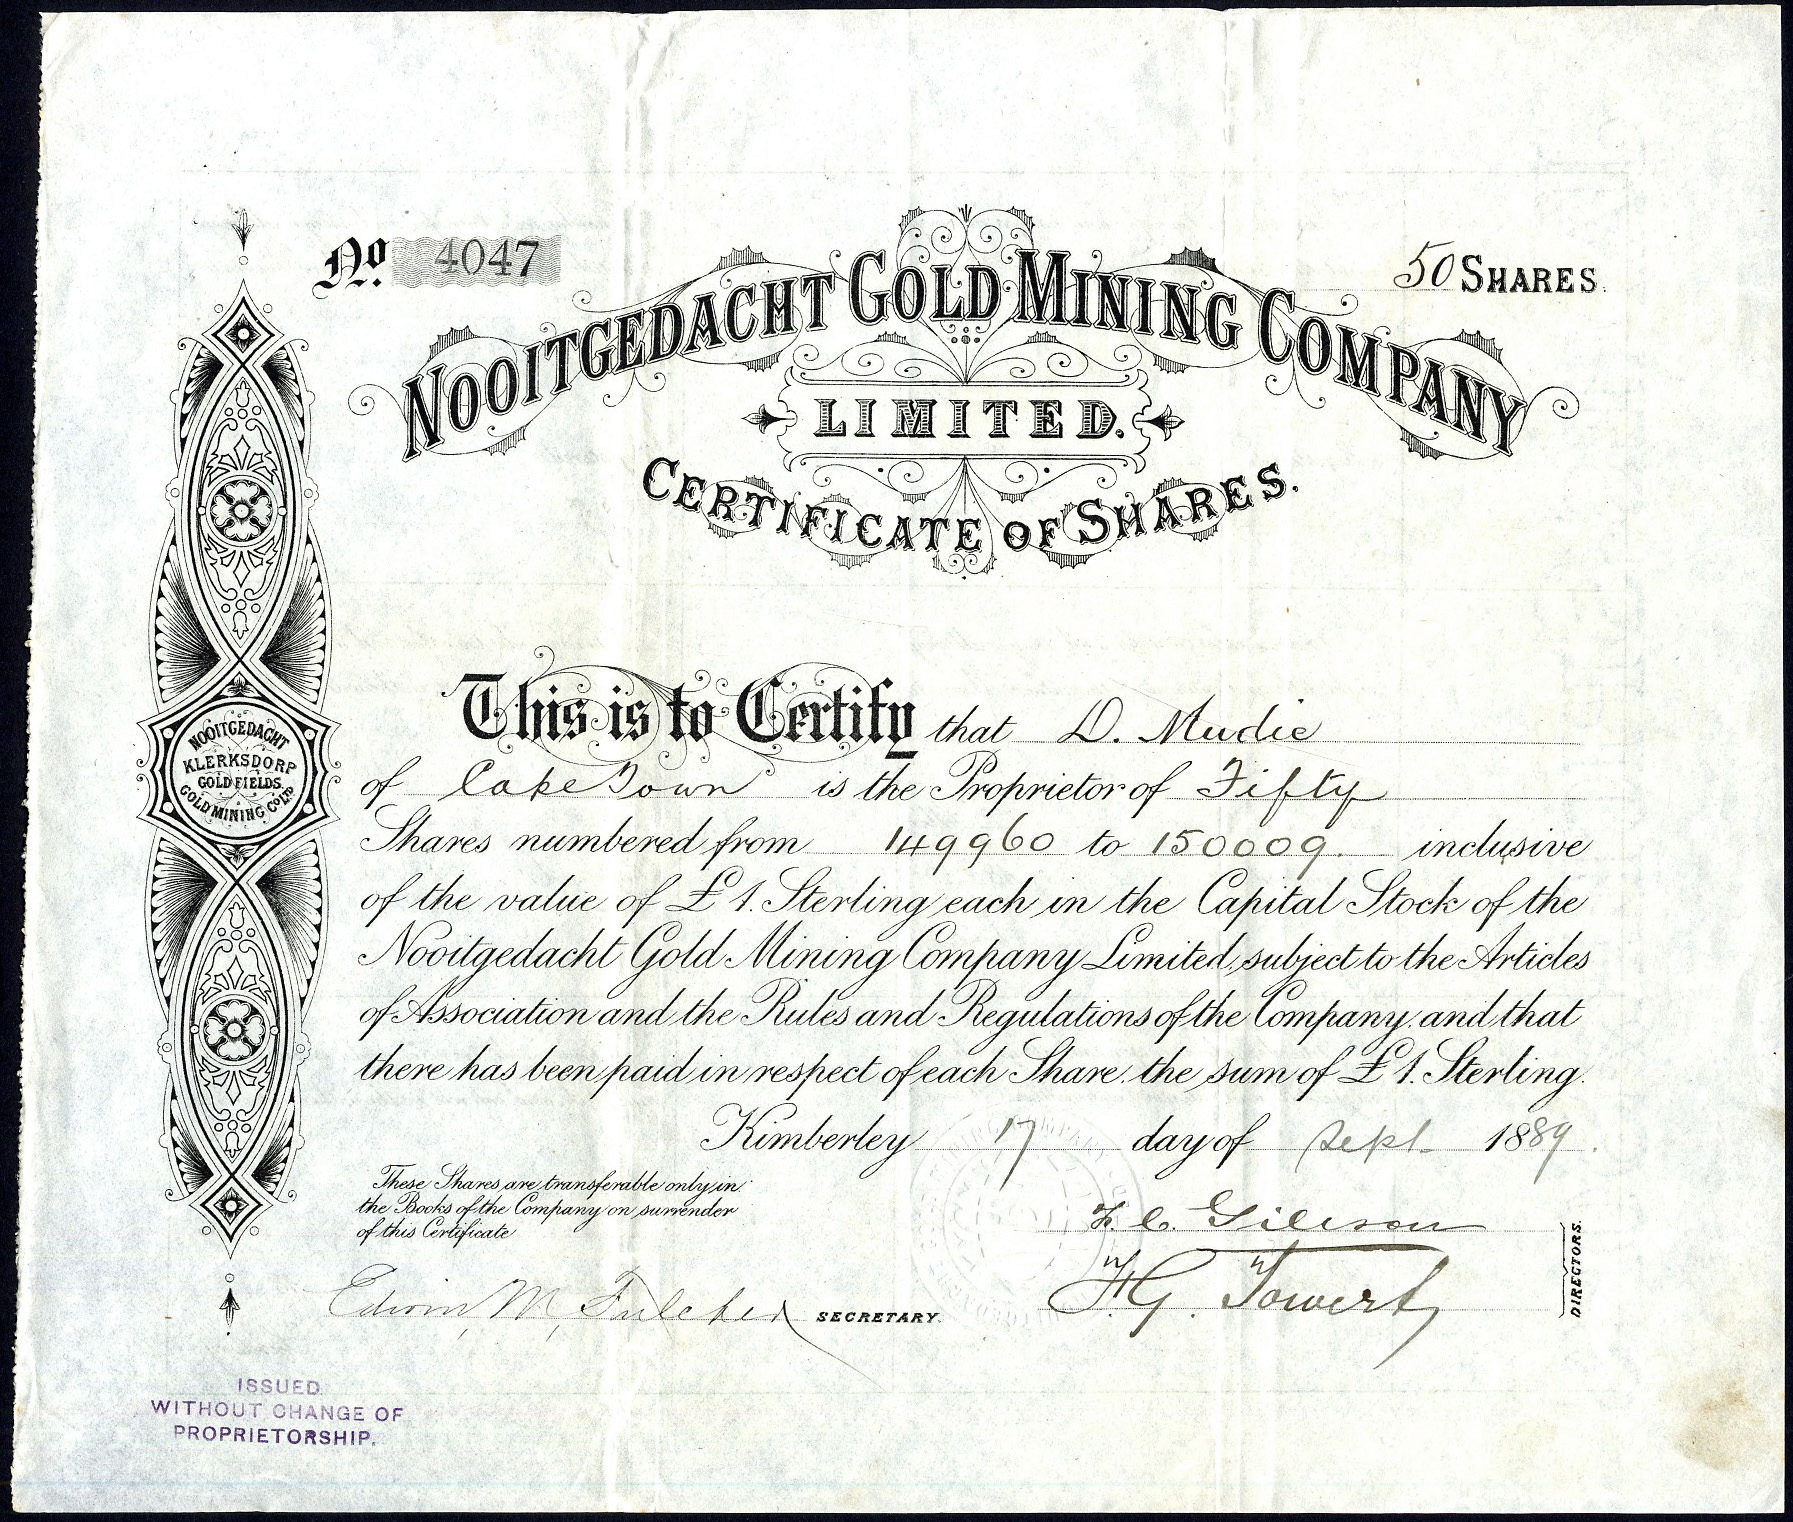 No. 4047
50 SHARES.
NOOITGEDACHT GOLD MINING COMPANY
LIMITED.
CERTIFICATE OF SHARES.
This is to Certify that D. Mudie
of Cape Town is the Proprietor of Fifty
Shares numbered from 149960 to 150009. inclusive
of the value of £1. Sterling each in the Capital Stock of the
Nooitgedacht Gold Mining Company Limited, subject to the Articles
of Association and the Rules and Regulations of the Company. and that
there has been paid in respect of each Share. the sum of £1. Sterling.
Kimberley 17 day of Sept. 1889.
NOOITGEDACHT
KLERKSDORP
GOLDFIELDS.
GOLD MINING CO LTD
These Shares are transferable only in
the Books of the Company on surrender
of this Certificate
Edwin M. Fulcher SECRETARY.
F.G. Towert
DIRECTORS.
ISSUED
WITHOUT CHANGE OF
PROPRIETORSHIP.